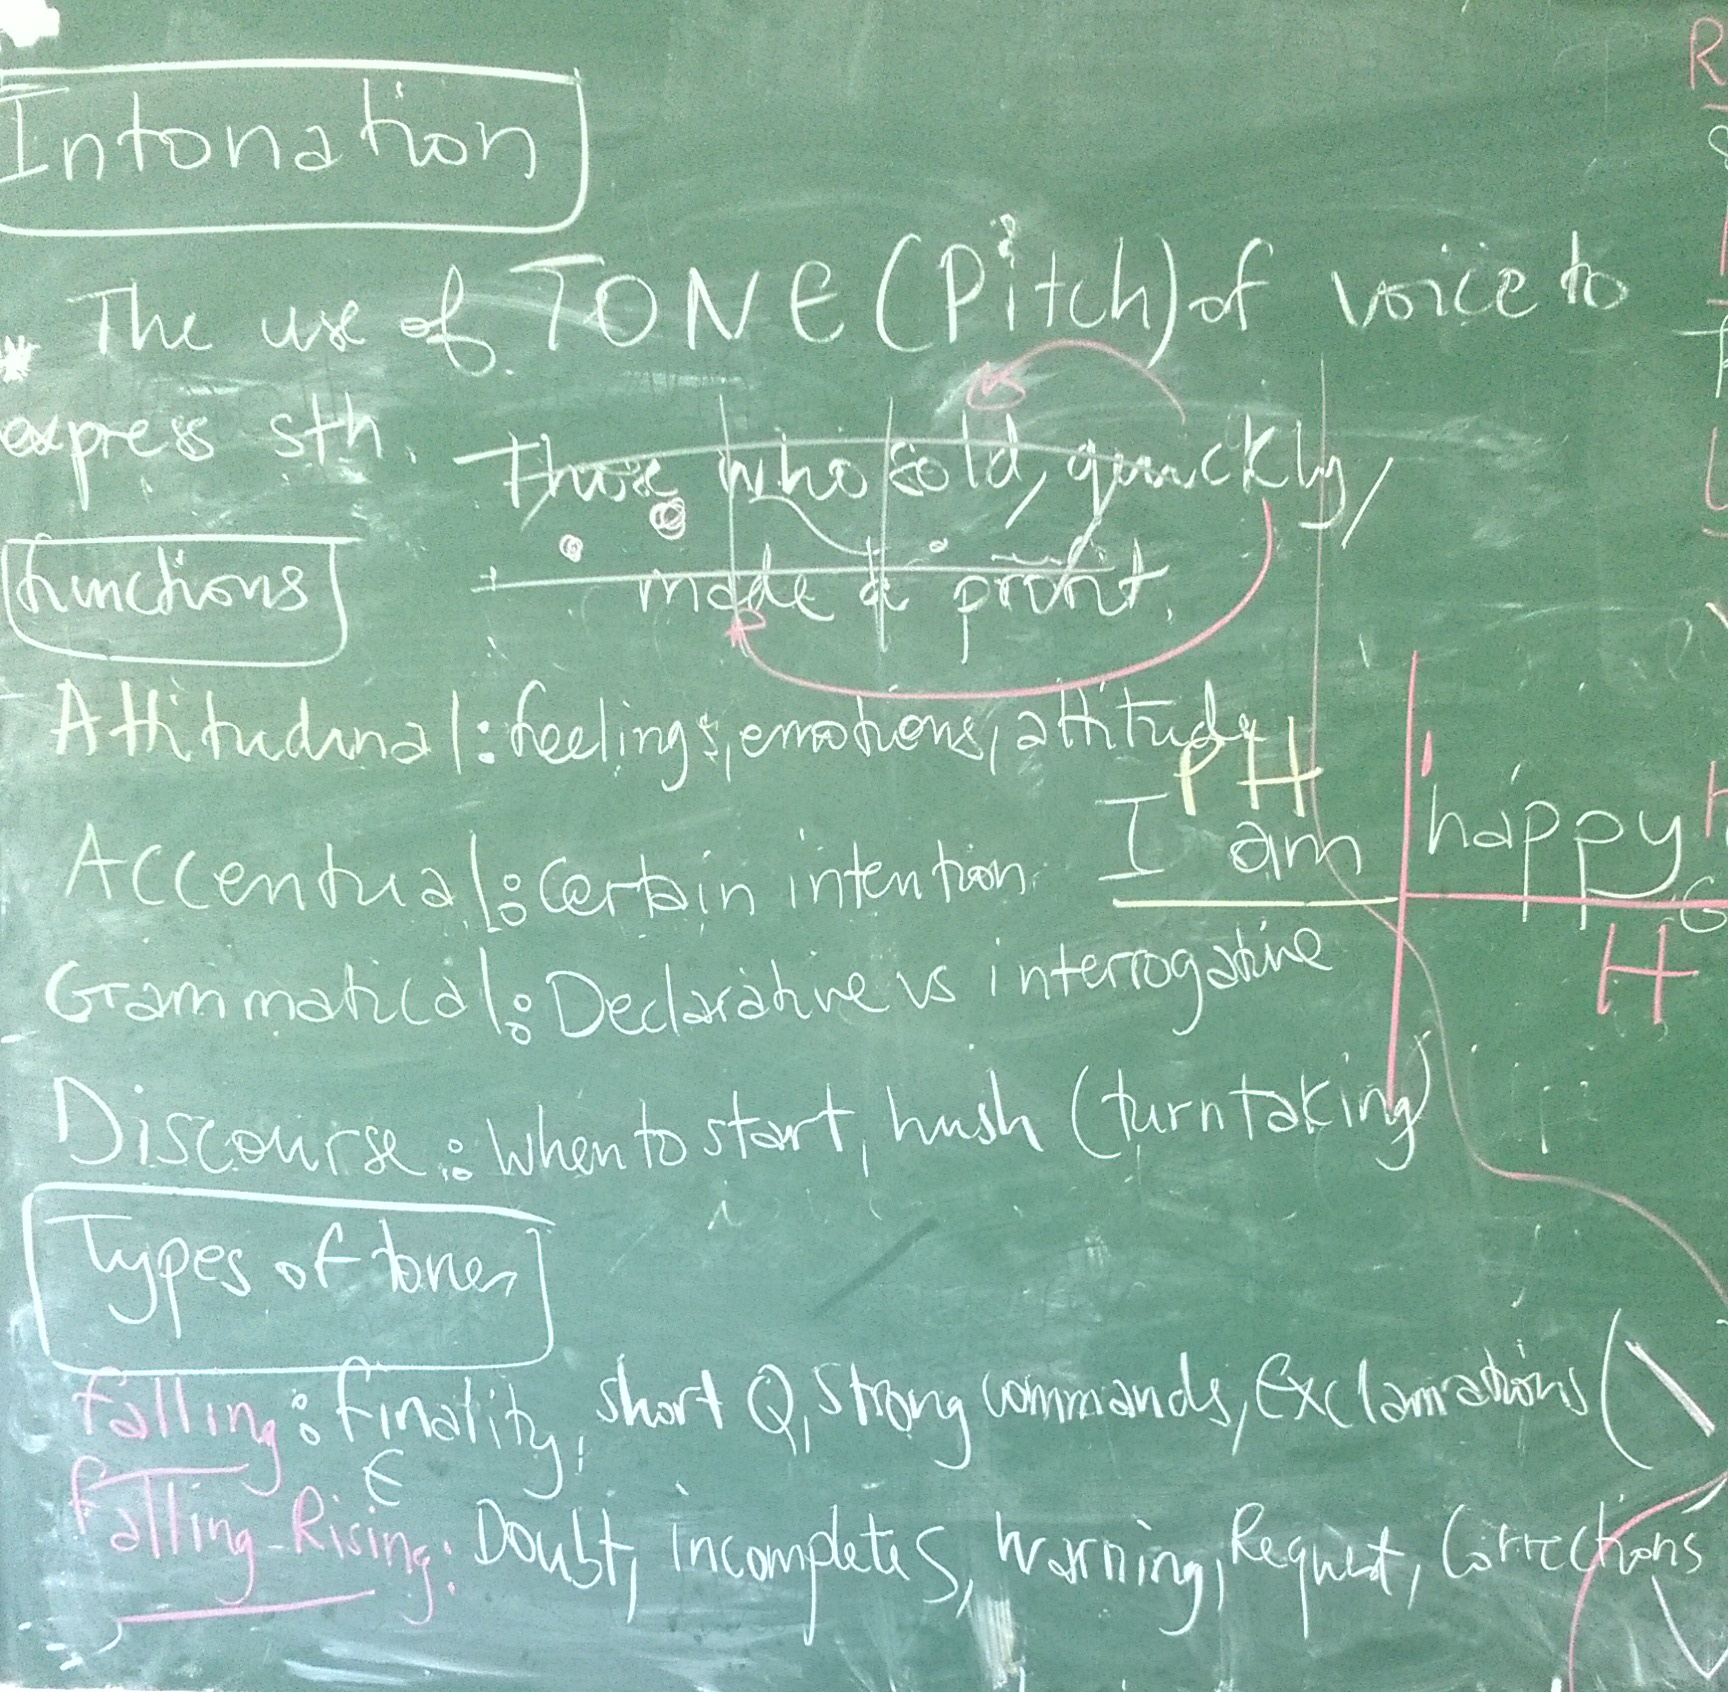 Intonation
The use of TONE (Pitch) of voice to
express sth.
Those who sold, quickly,
made a profit.
functions
Attitudinal: feelings, emotions, attitude
PH
I am happy
H
Accentual: Certain intention
Grammatical: Declarative vs interrogative
Discourse: When to start, hush (turn taking)
Types of tones
Falling: Finality, short Q, strong commands, Exclamations (\
Falling-Rising: Doubt, incompletes, Warning, Request, Corrections